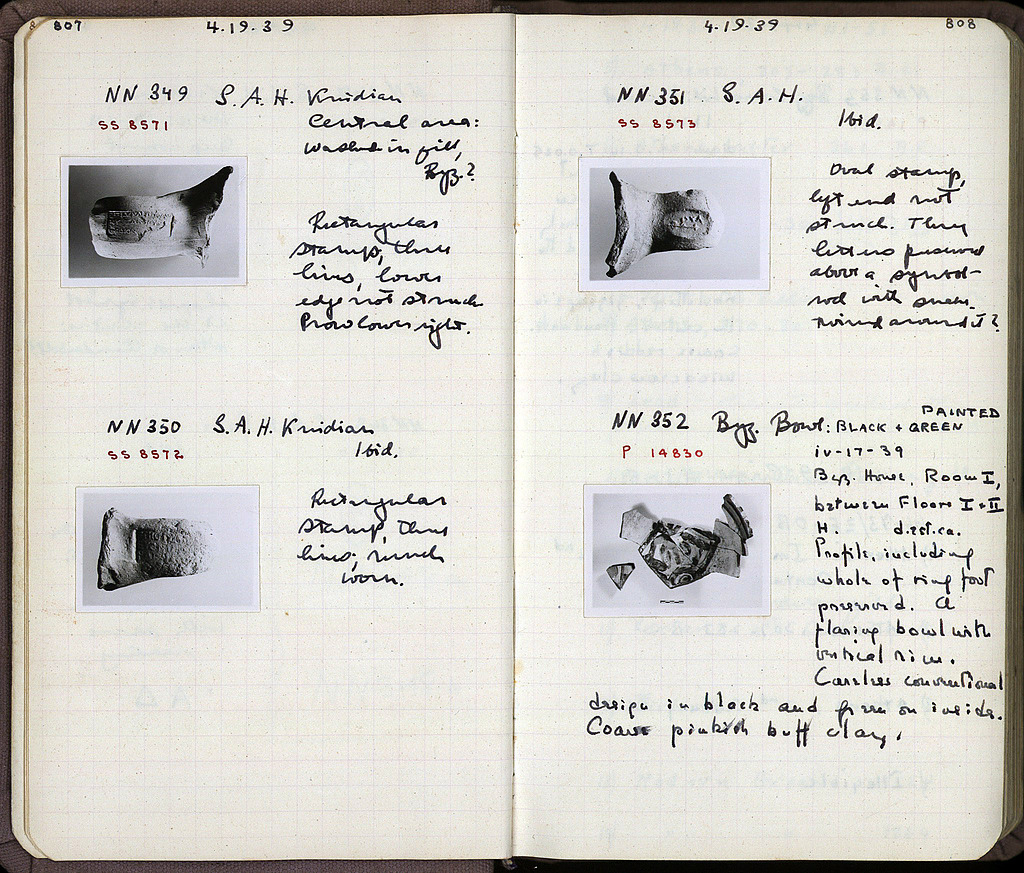 807
4.19.39
NN 349 S.A.H. Knidian
SS 8571
Central area:
washed in fill,
Byz.?
Rectangular
stamp, three
lines, lower
edge not struck
Prow lower right.
NN 350 S.A.H. Knidian
SS 8572
Ibid.
Rectangular
stamp, three
lines; much
worn.
4-19-39
808
NN 351 S.A.H.
SS 8573
Ibid.
Oval stamp,
left end not
struck. Three
letters preserved
above a symbol-
rod with snake
twined around it?
NN 352 Byz. Bowl: BLACK + GREEN
PAINTED
P 14830
iv-17-39
Byz. House, Room I,
between Floors I + II
H. d.est.ca.
Profile, including
whole of ring foot
preserved. A
flaring bowl with
vertical rim.
Careless conventional
design in black and green on inside.
Coarse pinkish buff clay.